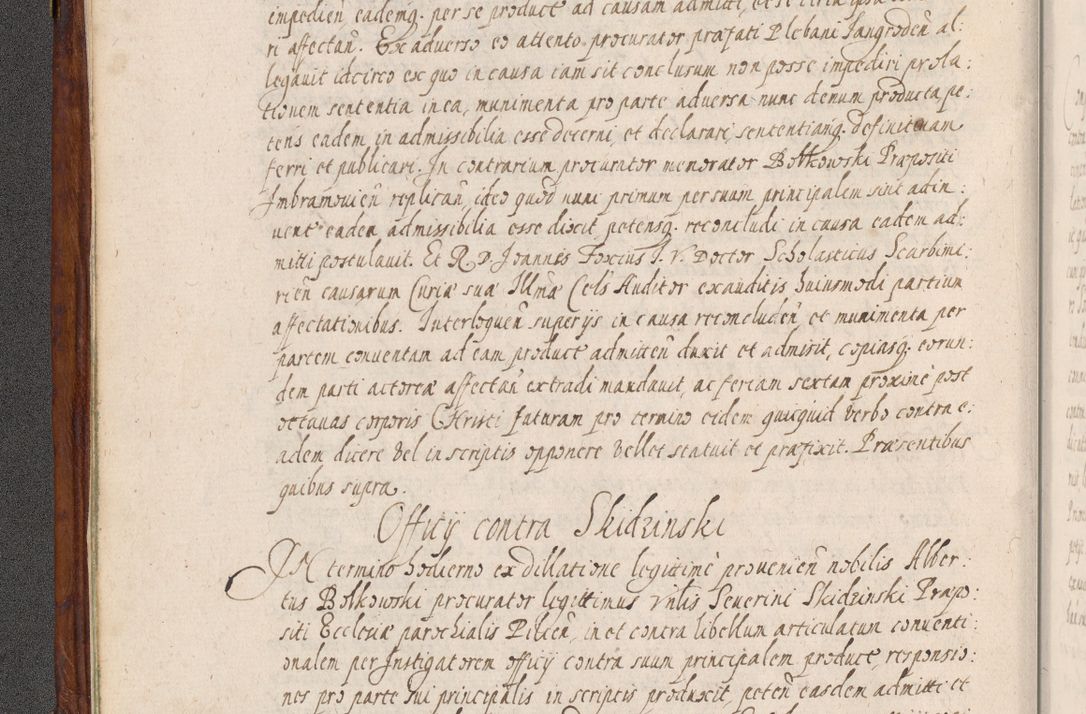 impedien̄ eademq. per se product ad causam admitti, et se circa ipsa
ri affectan̄. Ex adverso eo attento procurator præfati Plebani Langroden̄ al:
legavit idcirco ex quo in causa iam sit conclusum non posse impediri prola:
tionem sententia in ea, munimenta pro parte adversa nunc demum producta pe:
tens eadem in admissibilia esse decerni, et declarari, sententiamq. definitivam
ferri et publicari. In contrarium procurator memorator Bolkowski Præpositi
Imbramovien̄ replican̄, ideo quod nunc primum per suum principalem sint adin:
vent eadea admissibilia esse dixit, petensq. reconcludi in causa eadem ad:
mitti postulavit. Et R. D. Joannes Foxius J. V. Doctor Scholasticus Scarbimi:
rien̄ causarum Curiæ suæ Illmæ Cels Auditor exauditis huiusmodi partium
affectationibus. Interloquen̄ superijs in causa reconcluden̄ et munimenta per
partem conventam ad eam product admitten̄ duxit et admisit, copiasq. eorun:
dem parti actoreæ affectan̄ extradi mandavit, ac feriam sextam proximè post
octavas corporis Christi futuram pro termino eidem quicquid verbo contra e:
adem dicere vel in scriptis opponere vellet statuit et præfixit. Præsentibus
quibus supra.
Officij contra Skidzinski
In termino hodierno ex dillatione legittimè provenien̄ nobilis Alber:
tus Bolkowski procurator legittimus Vnlis Severini Skidzinski Præpo:
siti Ecclesiæ parochialis Pilcen̄, in et contra libellum articulatum conventi:
onalem per Instigatorem officij contra suum principalem product, responsio:
nes pro parte sui principalis in scriptis produxit, peten̄ easdem admitti et